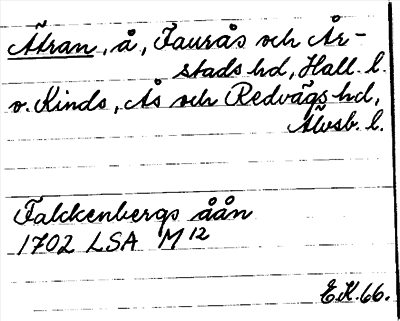 Ätran, å, Faurås och År-
stads hd, Hall. l.
o. Kinds, Ås och Redvägs hd,
Älvsb. l.
Falckenbergs åån
1702 LSA M 12
E.K. 66.